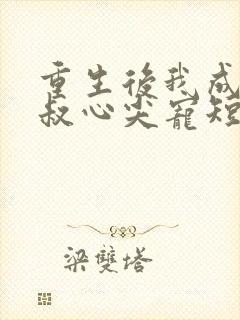 重生後我成
叔心尖寵短
梁雙塔